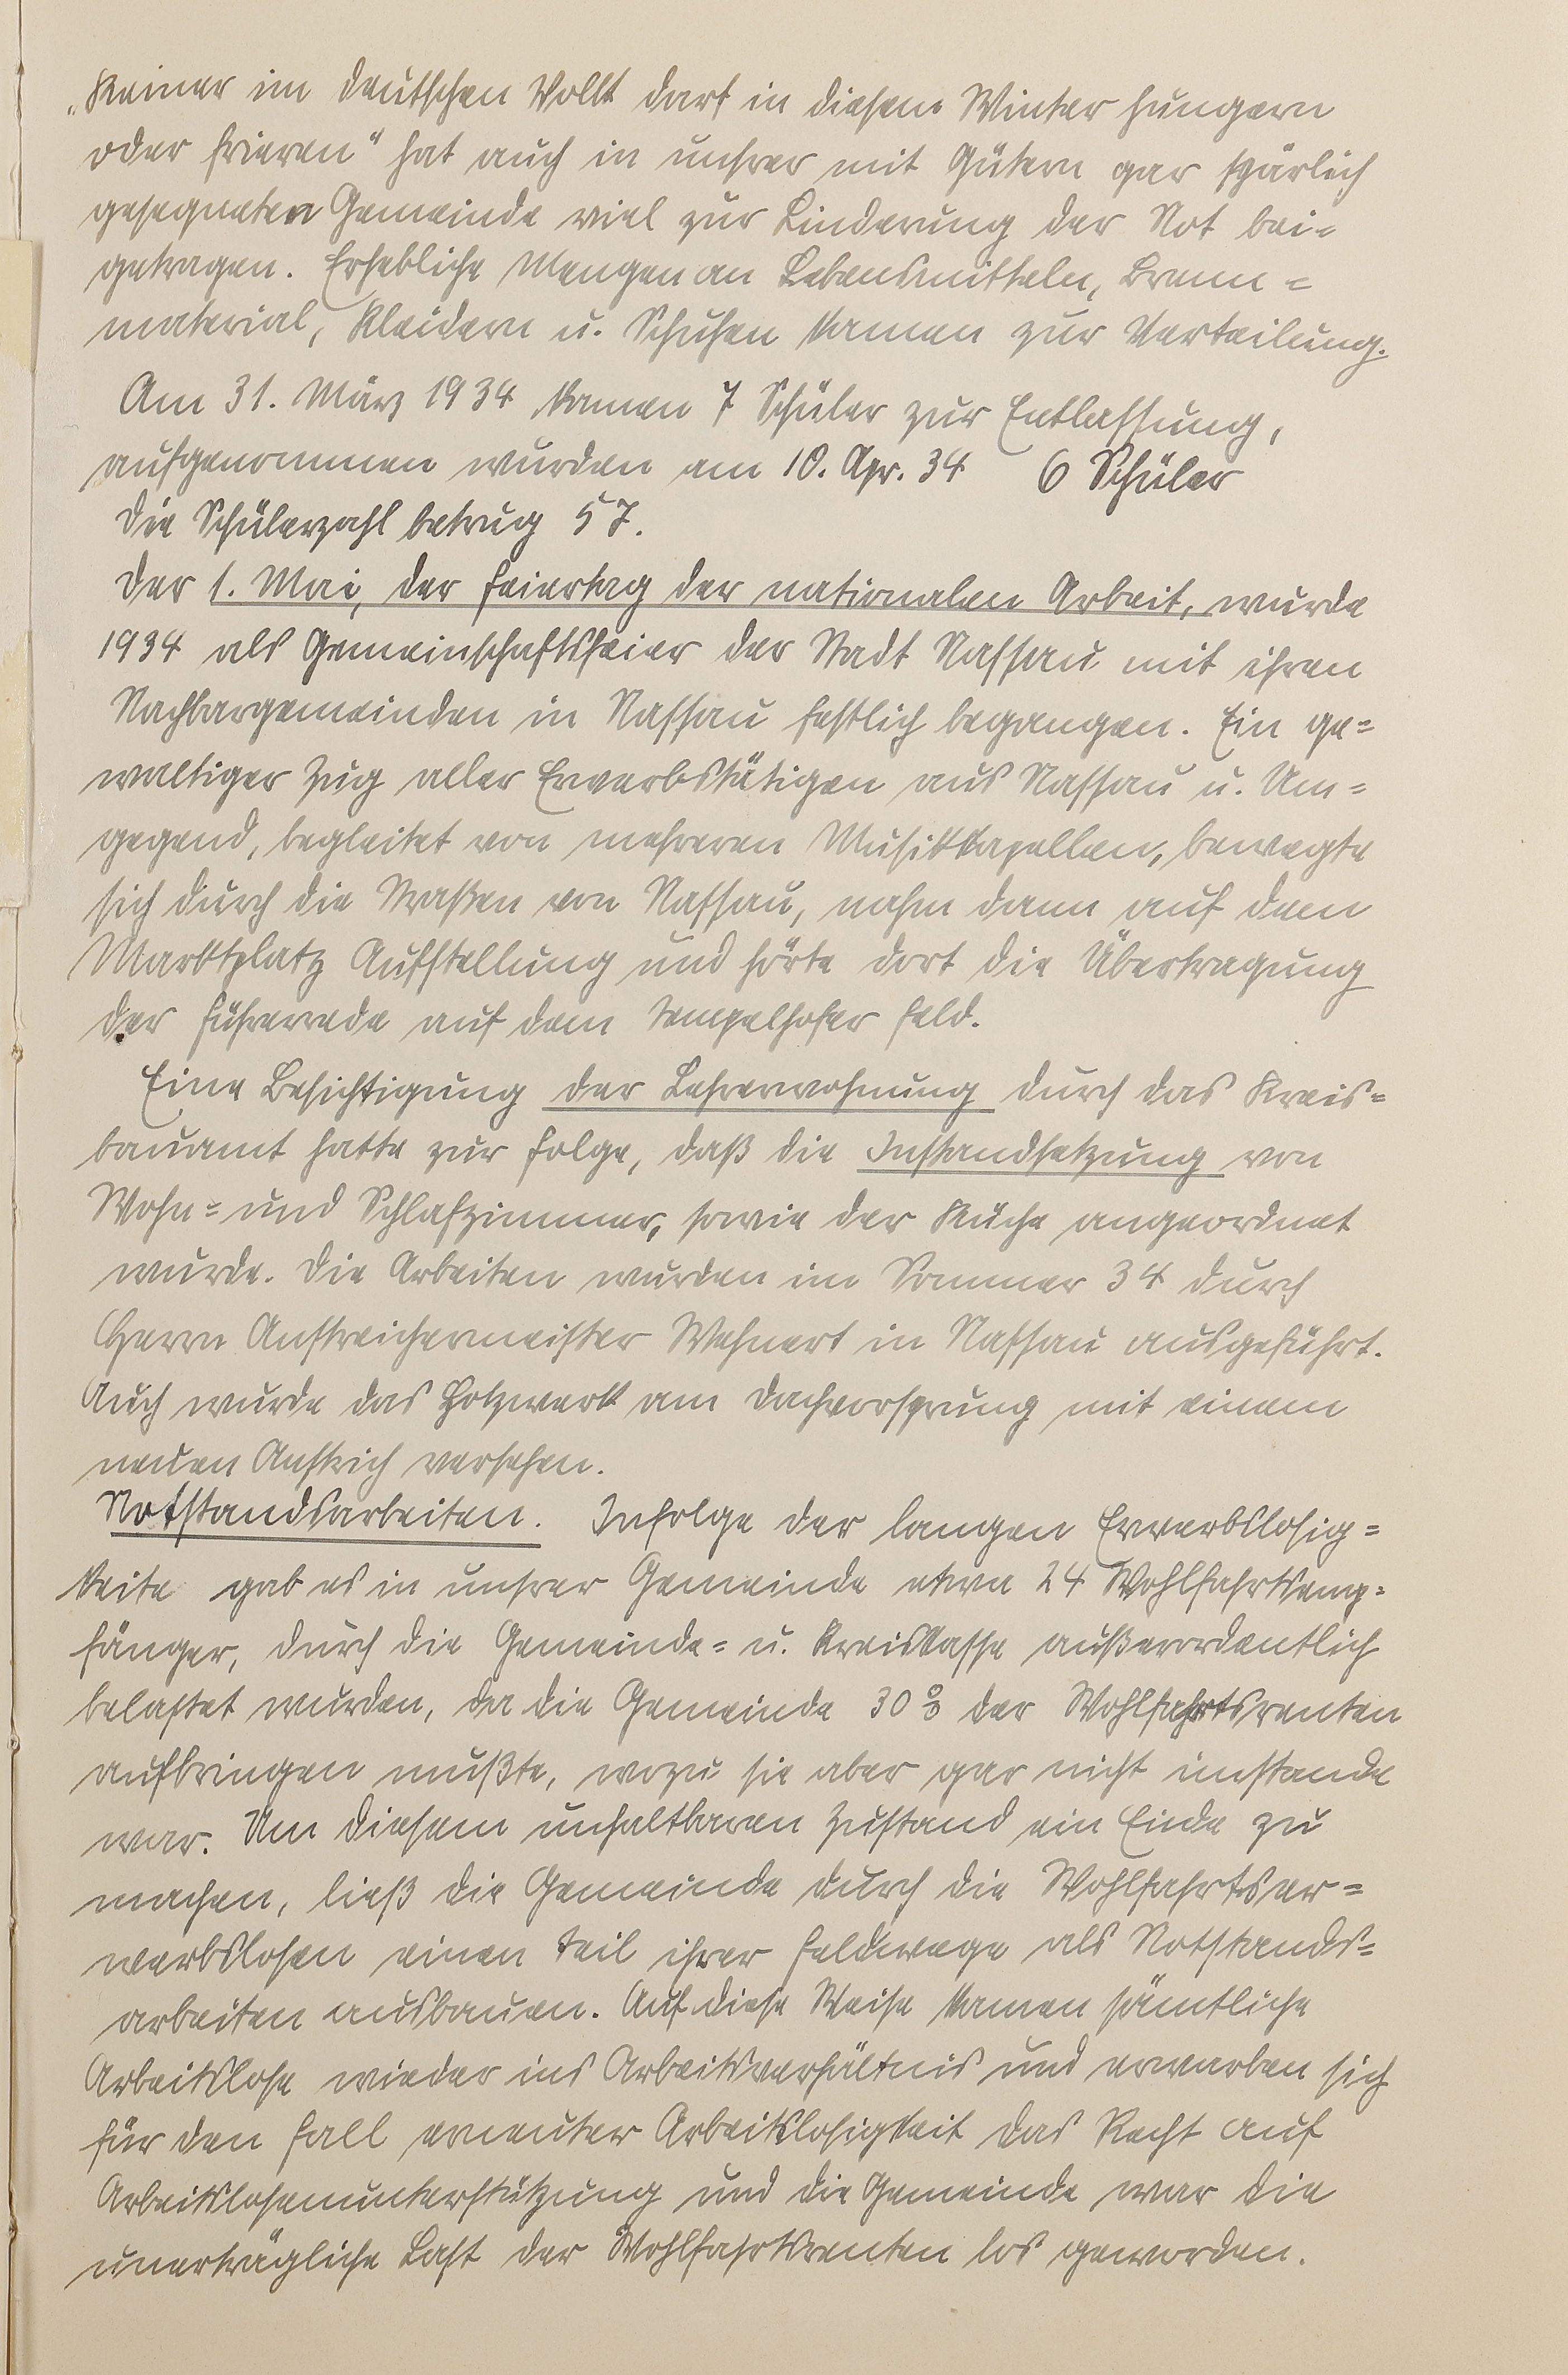 „Keiner im deutschen Volk darf in diesem Winter hungern
oder frieren" hat auch in unsrer mit Gütern gar spärlich
gesegneten Gemeinde viel zur Linderung der Not bei=
getragen. Erhebliche Mengen an Lebensmitteln, Brenn=
material, Kleidern u. Schuhen kamen zur Verteilung.
Am 31. März 1934 kamen 7 Schüler zur Entlassung,
aufgenommen wurden am 10. Apr. 34 6 Schüler
Die Schülerzahl betrug 57.
Der 1. Mai, der Feiertag der nationalen Arbeit, wurde
1934 als Gemeinschaftsfeier der Stadt Nassau mit ihren
Nachbargemeinden in Nassau festlich begangen. Ein ge=
waltiger Zug aller Erwerbstätigen aus Nassau u. Um=
gegend, begleitet von mehreren Musikkapellen, bewegte
sich durch die Straßen von Nassau, nahm dann auf dem
Marktplatz Aufstellung und hörte dort die Übertragung
der Führerrede auf dem Tempelhofer Feld.
Eine Besichtigung der Lehrerwohnung durch das Kreis=
bauamt hatte zur Folge, daß die Instandsetzung von
Wohn= und Schlafzimmer, sowie der Küche angeordnet
wurde. Die Arbeiten wurden im Sommer 34 durch
Herrn Anstreichermeister Wehnert in Nassau ausgeführt.
Auch wurde das Holzwerk am Dachvorsprung mit einem
neuen Anstrich versehen.
Notstandsarbeiten. Infolge der langen Erwerbslosig=
keite gab es in unsrer Gemeinde etwa 24 Wohlfahrtsemp=
fänger, durch die Gemeinde= u. Kreiskasse außerordentlich
belastet wurden, da die Gemeinde 30% der Wohlfahrtsrenten
aufbringen mußte, wozu sie aber gar nicht imstande
war. Um diesem unhaltbaren Zustand ein Ende zu
machen, ließ die Gemeinde durch die Wohlfahrtser=
werbslosen einen Teil ihrer Feldwege als Notstands=
arbeiten ausbauen. Auf diese Weise kamen sämtliche
Arbeitslose wieder ins Arbeitsverhältnis und erwarben sich
für den Fall erneuter Arbeitslosigkeit das Recht auf
Arbeitslosenunterstützung und die Gemeinde war die
unerträgliche Last der Wohlfahrtsrenten los geworden.